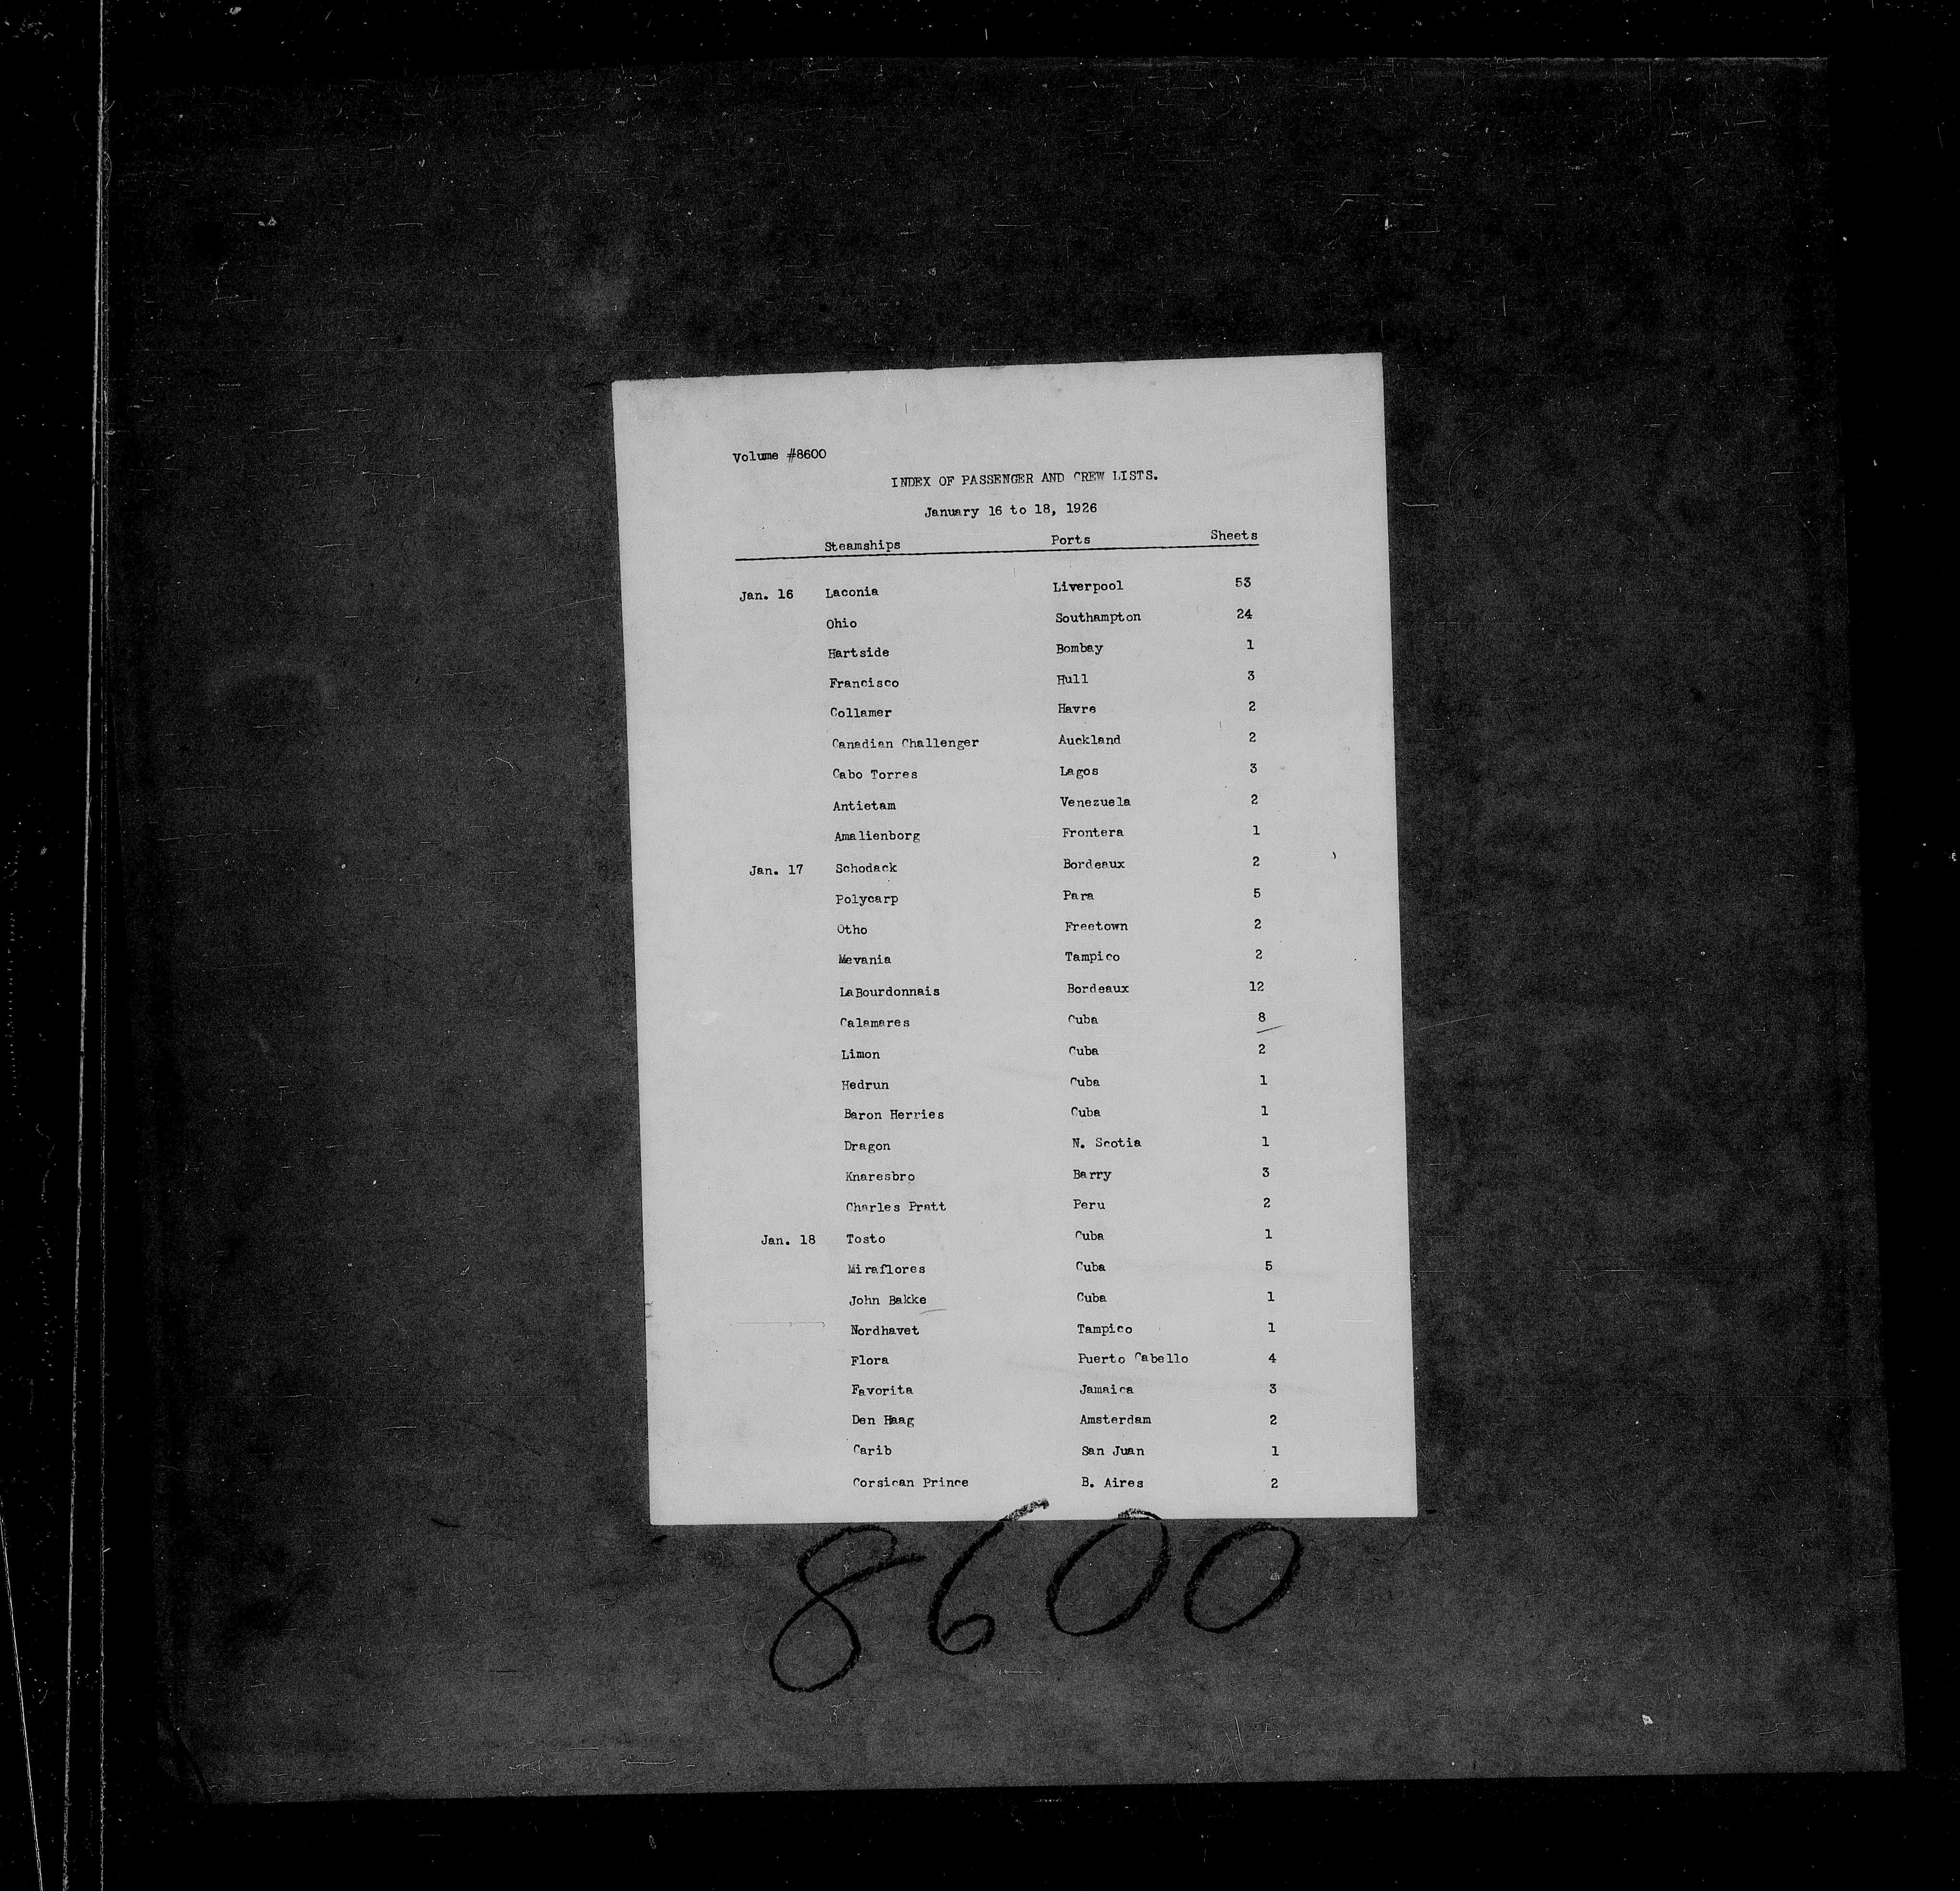 Volume #8600
INDEX OF PASSENGER AND CREW LISTS.
January 16 to 18, 1926
Steamships Ports Sheets
Jan. 16 Laconia Liverpool 53
Ohio Southampton 24
Hartside Bombay 1
Francisco Hull 3
Collamer Havre 2
Canadian Challenger Auckland 2
Cabo Torres Lagos 3
Antietam Venezuela 2
Amalienborg Frontera 1
Jan. 17 Schodack Bordeaux 2
Polycarp Para 5
Otho Freetown 2
Mevania Tampico 2
LaBourdonnais Bordeaux 12
Calamares Cuba 8
Limon Cuba 2
Hedrun Cuba 1
Baron Herries Cuba 1
Dragon N. Scotia 1
Knaresbro Barry 3
Charles Pratt Peru 2
Jan. 18 Tosto Cuba 1
Miraflores Cuba 5
John Bakke Cuba 1
Nordhavet Tampico 1
Flora Puerto Cabello 4
Favorita Jamaica 3
Den Haag Amsterdam 2
Carib San Juan 1
Corsican Prince B. Aires 2
8600